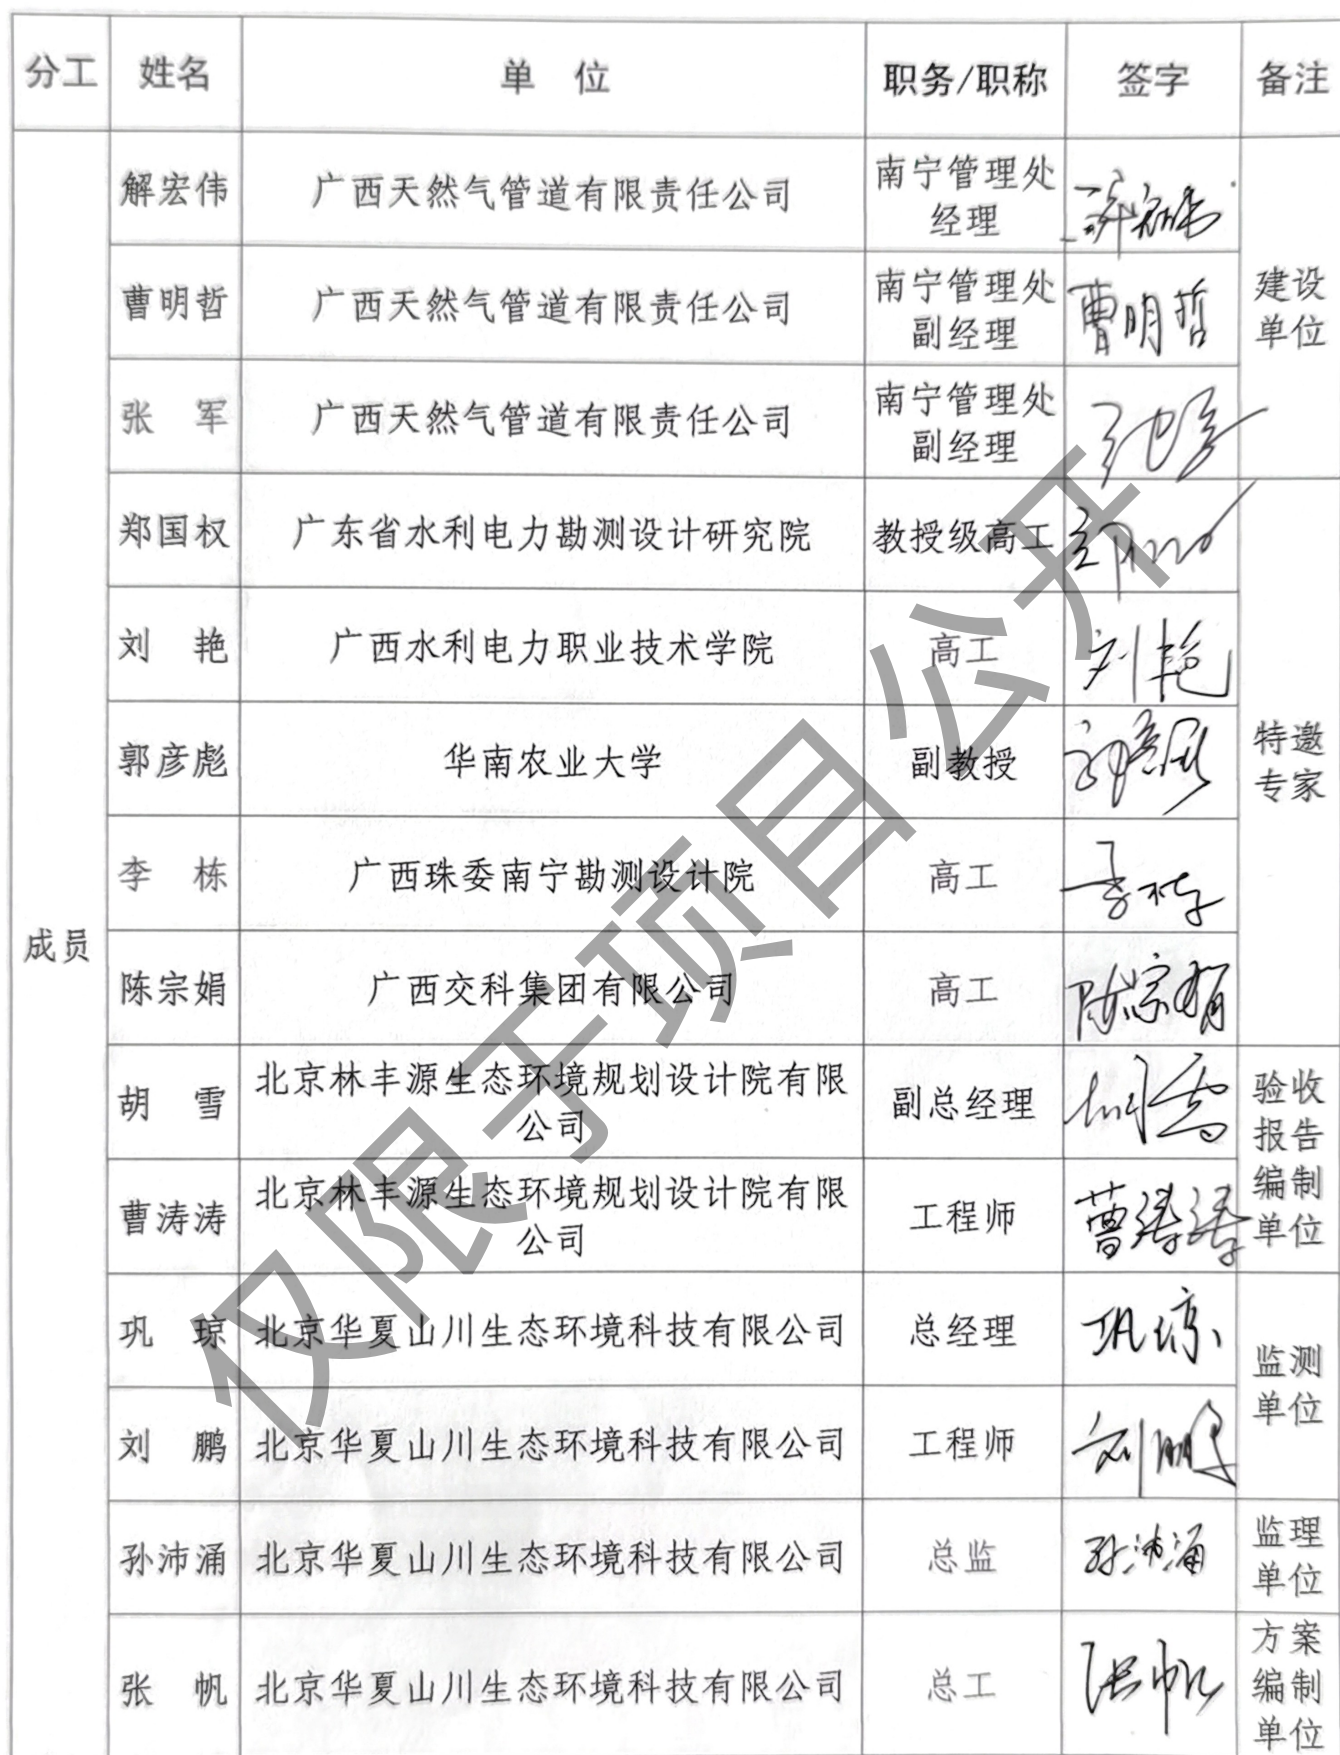 分工 姓名 单 位 职务/职称 签字 备注
成员
解宏伟 广西天然气管道有限责任公司 南宁管理处
经理
曹明哲 广西天然气管道有限责任公司 南宁管理处
副经理 曹明哲
建设
单位
张 军 广西天然气管道有限责任公司 南宁管理处
副经理
郑国权 广东省水利电力勘测设计研究院 教授级高工
刘 艳 广西水利电力职业技术学院 高工 刘艳
郭彦彪 华南农业大学 副教授
特邀
专家
李 栋 广西珠委南宁勘测设计院 高工 李栋
陈宗娟 广西交科集团有限公司 高工 陈宗娟
胡 雪 北京林丰源生态环境规划设计院有限
公司 副总经理 胡雪
曹涛涛 北京林丰源生态环境规划设计院有限
公司 工程师 曹涛涛
验收
报告
编制
单位
巩 琼 北京华夏山川生态环境科技有限公司 总经理 巩琼
刘 鹏 北京华夏山川生态环境科技有限公司 工程师 刘鹏
监测
单位
孙沛涌 北京华夏山川生态环境科技有限公司 总监 孙沛涌
监理
单位
张 帆 北京华夏山川生态环境科技有限公司 总工 张帆
方案
编制
单位
仅限于项目公开